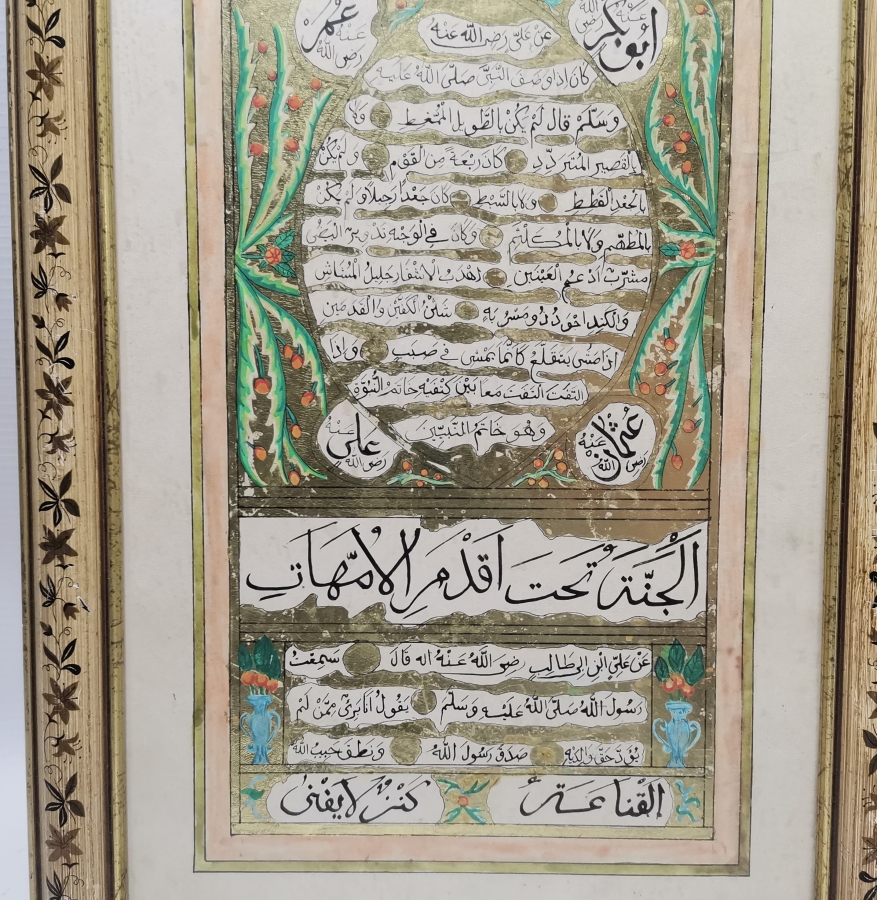 أبو بكر رضى الله عنه
عمر رضى الله عنه
عن على رضى الله عنه
كان اذا وصف النبى صلى الله عليه
وسلم قال لم يكن بالطويل الممغط ولا
بالقصير المتردد كان ربعة من القوم ولم يكن
بالجعد القطط ولا بالسبط كان جعدا رجلا ولم يكن
بالمطهم ولا بالمكلثم وكان فى الوجه تدوير
مشرب ادعج العينين اهدب الاشفار جليل المشاش
والكتد اجود ذو مسربه شثن الكفين والقدمين
اذا مشى يتقلع كانما يمشى فى صبب واذا
التفت التفت معا بين كتفيه خاتم النبوة
وهو خاتم النبيين
عثمان رضى الله عنه
على رضى الله عنه
الجنة تحت اقدم الامهات
عن على ابن ابى طالب رضى الله عنه انه قال سمعت
رسول الله صلى الله عليه وسلم يقول انا برئ ممن لم
يؤد حق والديه صدق رسول الله ونطق حبيب الله
القناعة كنز لا يفنى